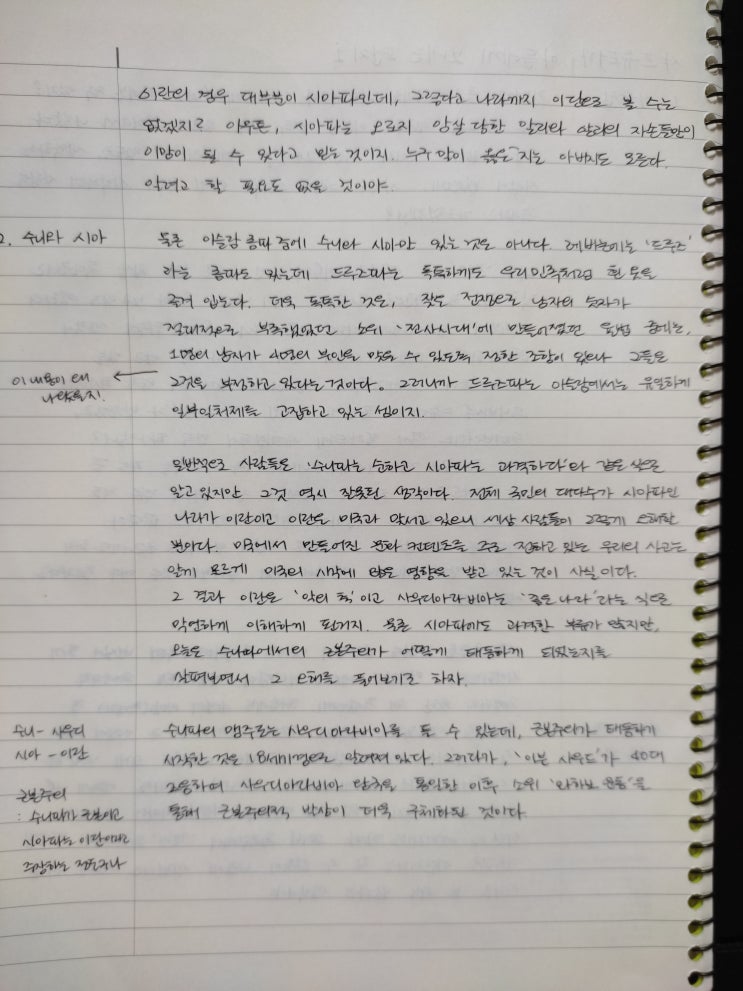 이란의 경우 대부분이 시아파인데, 그렇다고 나라까지 이단으로 볼 수는
없겠지? 아무튼, 시아파는 오로지 암살 당한 알리와 알리의 자손들만이
이맘이 될 수 있다고 믿는 것이지. 누구 말이 옳은지는 아버지도 모른다.
알려고 할 필요도 없을 것이야.
2. 수니와 시아
물론 이슬람 종파 중에 수니와 시아만 있는 것은 아니다. 레바논에는 '드루즈'
라는 종파도 있는데 드루즈파는 독특하게도 우리민족처럼 흰 옷을
즐겨 입는다. 더욱 독특한 것은, 잦은 전쟁으로 남자의 숫자가
절대적으로 부족했었던 소위 '전사시대'에 만들어졌던 율법 중에는,
1명의 남자가 4명의 부인을 맞을 수 있도록 정한 조항이 있으나 그들은
그것을 부정하고 있다는 것이다. 그러니까 드루즈파는 이슬람에서는 유일하게
일부일처제를 고집하고 있는 셈이지.
이 내용이 왜
나왔을지
일반적으로 사람들은 '수니파는 순하고 시아파는 과격하다'와 같은 식으로
알고 있지만 그것 역시 잘못된 생각이다. 전체 국민의 대다수가 시아파인
나라가 이란이고 이란은 미국과 맞서고 있으니 세상 사람들이 그렇게 오해할
뿐이다. 미국에서 만들어진 문화 컨텐츠를 주로 접하고 있는 우리의 사고는
알게 모르게 미국의 시각에 많은 영향을 받고 있는 것이 사실이다.
그 결과 이란은 '악의 축'이고 사우디아라비아는 '좋은 나라'라는 식으로
막연하게 이해하게 된거지. 물론 시아파에도 과격한 부류가 있지만,
오늘은 수니파에서의 근본주의가 어떻게 태동하게 되었는지를
살펴보면서 그 오해를 풀어보기로 하자.
수니 - 사우디
시아 - 이란
근본주의
: 수니파가 근본이고
시아파는 이단이라고
주장하는 정도구나
수니파의 맹주로는 사우디아라비아를 들 수 있는데, 근본주의가 태동하기
시작한 것은 18세기경으로 알려져 있다. 그러다가, '이븐 사우드'가 40대
초중반에 사우디아라비아 왕국을 통일한 이후 소위 '와하브 운동'을
통해 근본주의적 발상이 더욱 구체화된 것이다